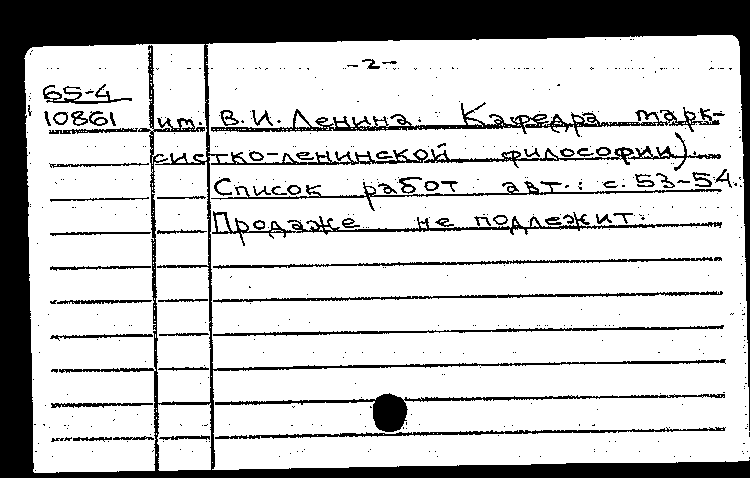 -2-
65-4
10861 им. В.И. Ленина. Кафедра марк-
систко-ленинской философии).
Список работ авт.: с. 53-54.
Продаже не подлежит.